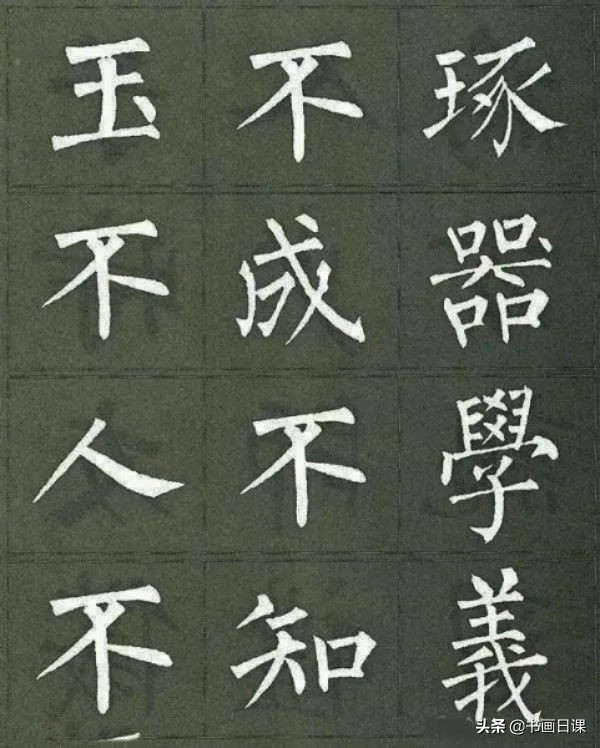 玉不琢
不成器
人不學
不知義
头条 @书画日课